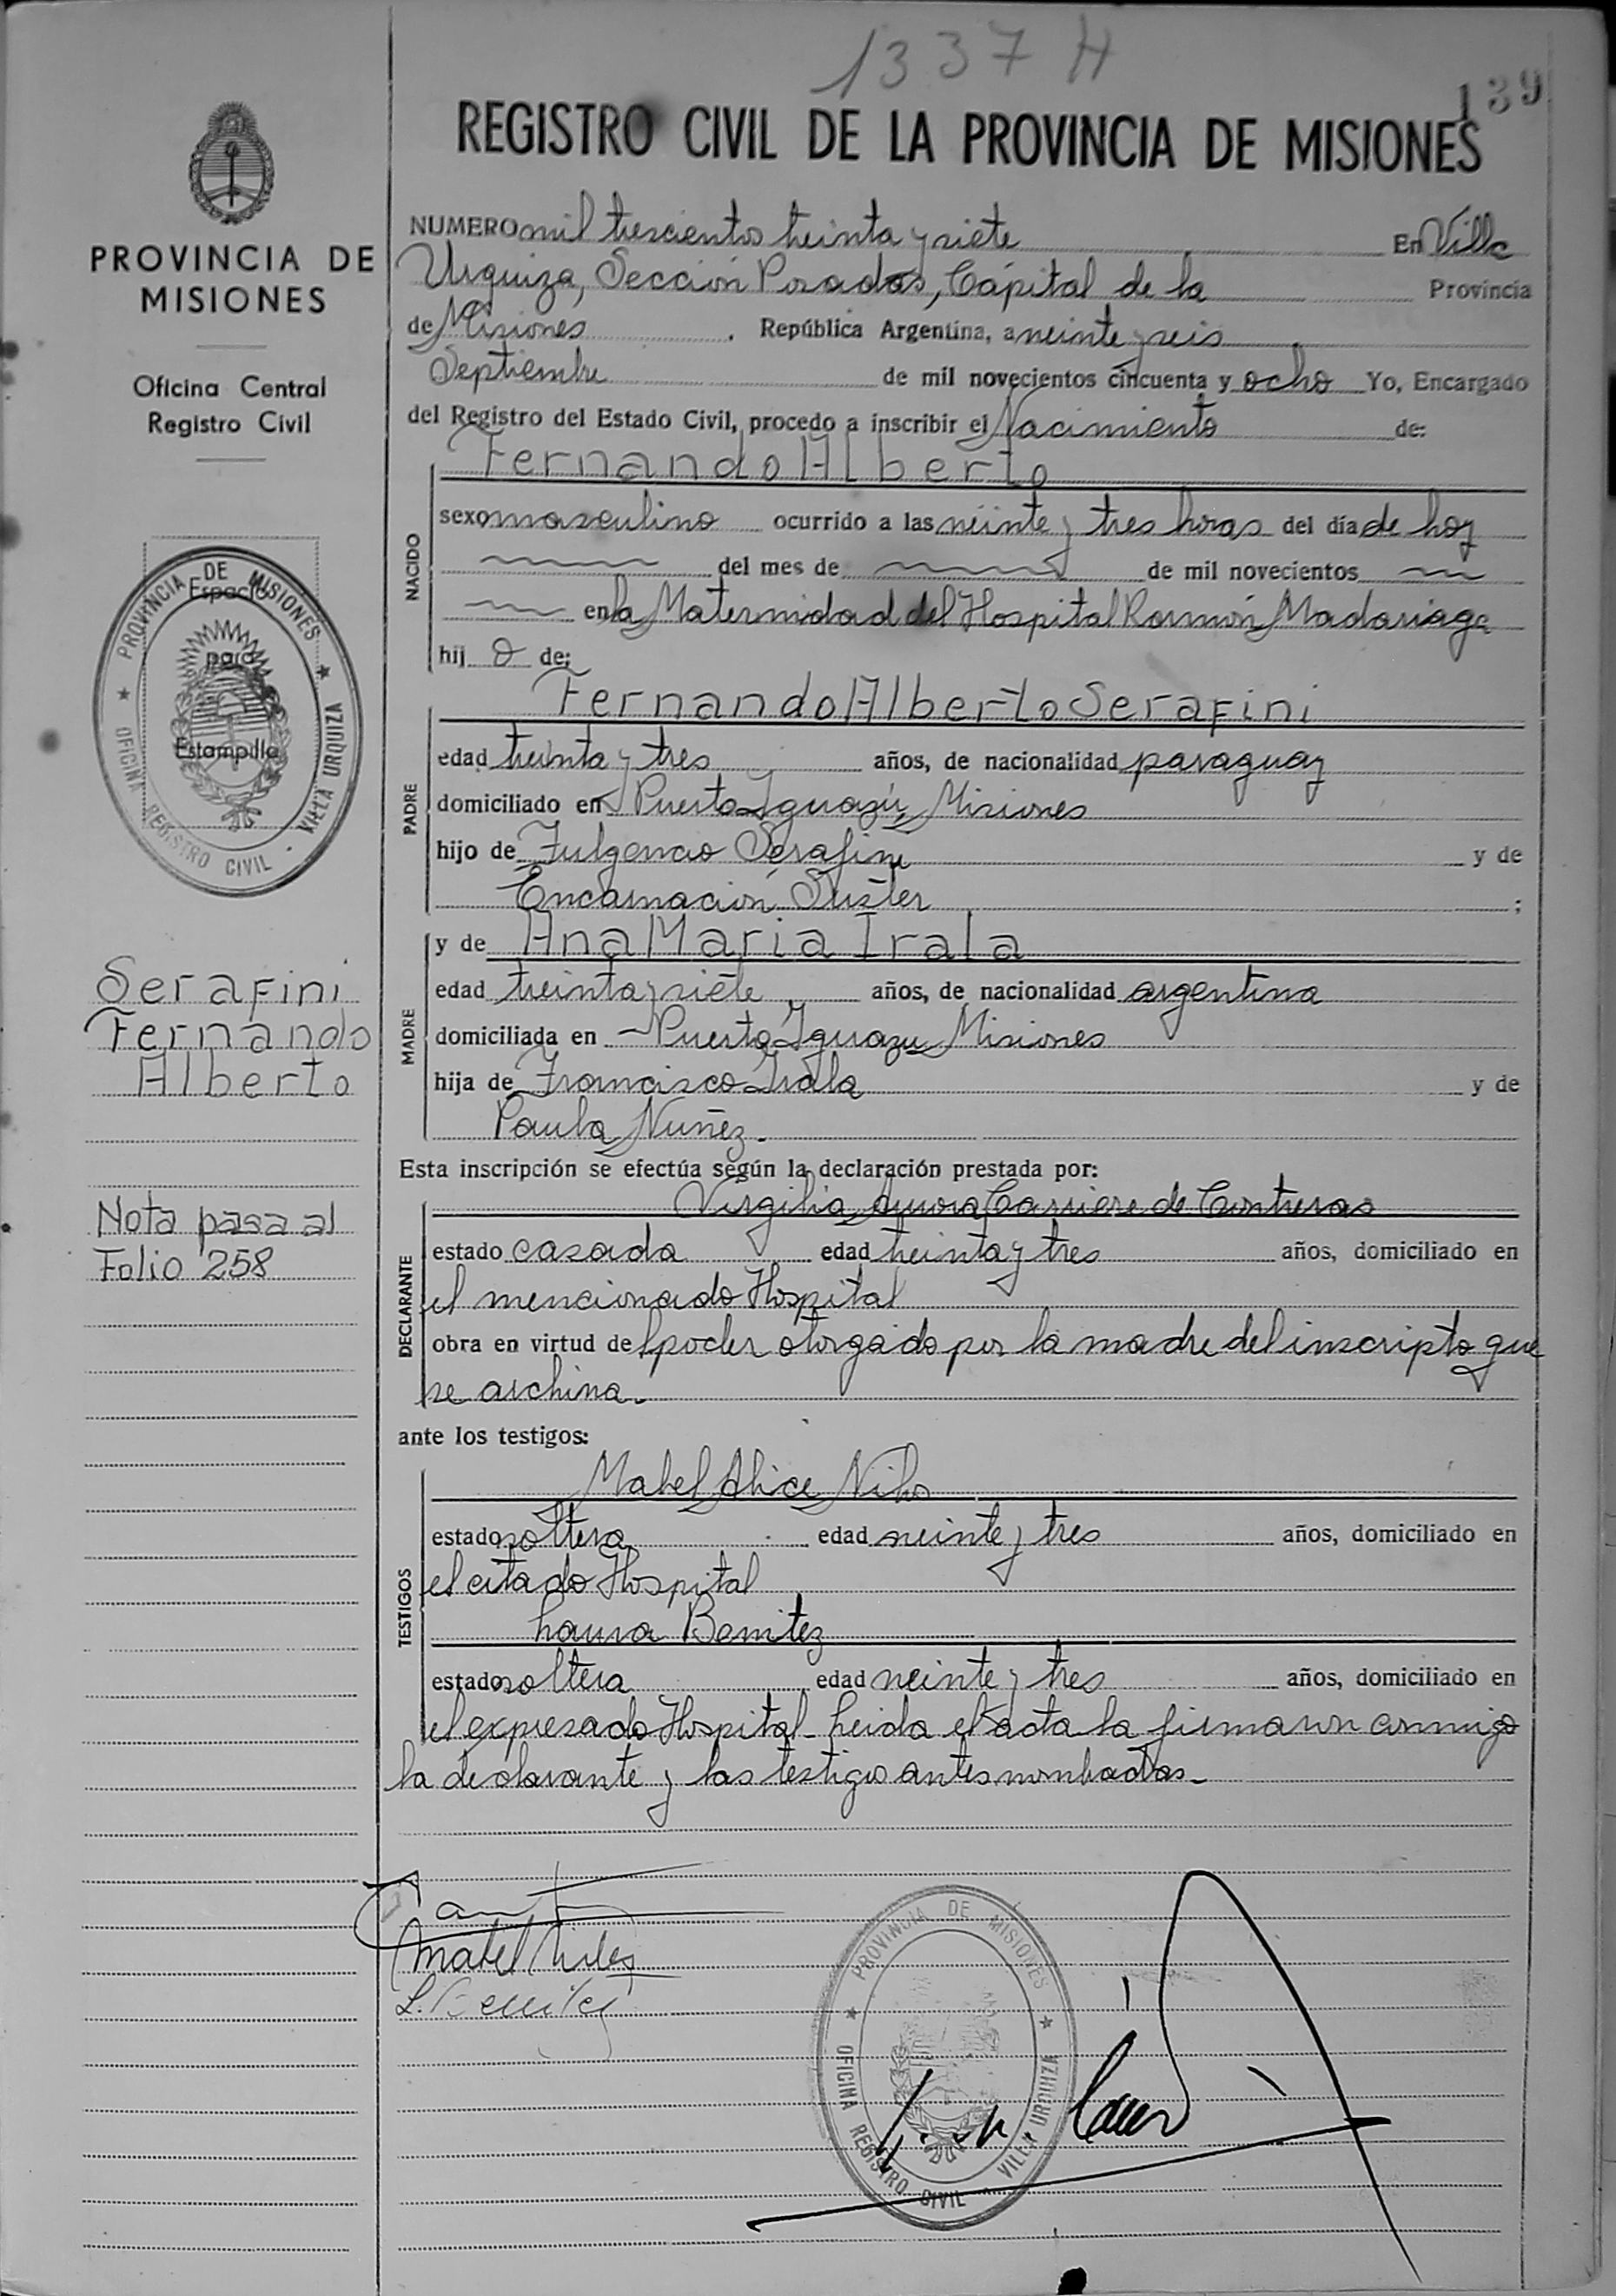 1337 H
139
REGISTRO CIVIL DE LA PROVINCIA DE MISIONES
PROVINCIA DE
MISIONES
Oficina Central
Registro Civil
PROVINCIA DE MISIONES
Espacio
para
Estampilla
OFICINA REGISTRO CIVIL - VILLA URQUIZA
Serafini
Fernando
Alberto
Nota pasa al
Folio 258
NUMERO mil trescientos treinta y siete En Villa
Urquiza, Sección Posadas, Cápital de la Provincia
de Misiones . República Argentina, a veinte y seis
Septiembre de mil novecientos cincuenta y ocho Yo, Encargado
del Registro del Estado Civil, procedo a inscribir el Nacimiento de:
Fernando Alberto
NACIDO
sexo masculino ocurrido a las veinte y tres horas del día de hoy
del mes de de mil novecientos
en la Maternidad del Hospital Ramón Madariaga
hij o de:
Fernando Alberto Serafini
PADRE
edad treinta y tres años, de nacionalidad paraguay
domiciliado en Puerto Iguazú, Misiones
hijo de Fulgencio Serafini y de
Encarnación ;
y de Ana Maria Irala
MADRE
edad treinta y siete años, de nacionalidad argentina
domiciliada en Puerto Iguazu Misiones
hija de Francisco Irala y de
Paula Nuñez.
Esta inscripción se efectúa según la declaración prestada por:
Virgilia Aurora Carriere de Contreras
DECLARANTE
estado casada edad treinta y tres años, domiciliado en
el mencionado Hospital
obra en virtud del poder otorgado por la madre del inscripto que
se archiva.
ante los testigos:
Mabel Alice
TESTIGOS
estado soltera edad veinte y tres años, domiciliado en
el citado Hospital
Laura Benitez
estado soltera edad veinte y tres años, domiciliado en
el expresado Hospital. Leida el acta la firmaron conmigo
la declarante y las testigos antes nombradas.
Mabel
L. Benitez
PROVINCIA DE MISIONES
OFICINA REGISTRO CIVIL - VILLA URQUIZA